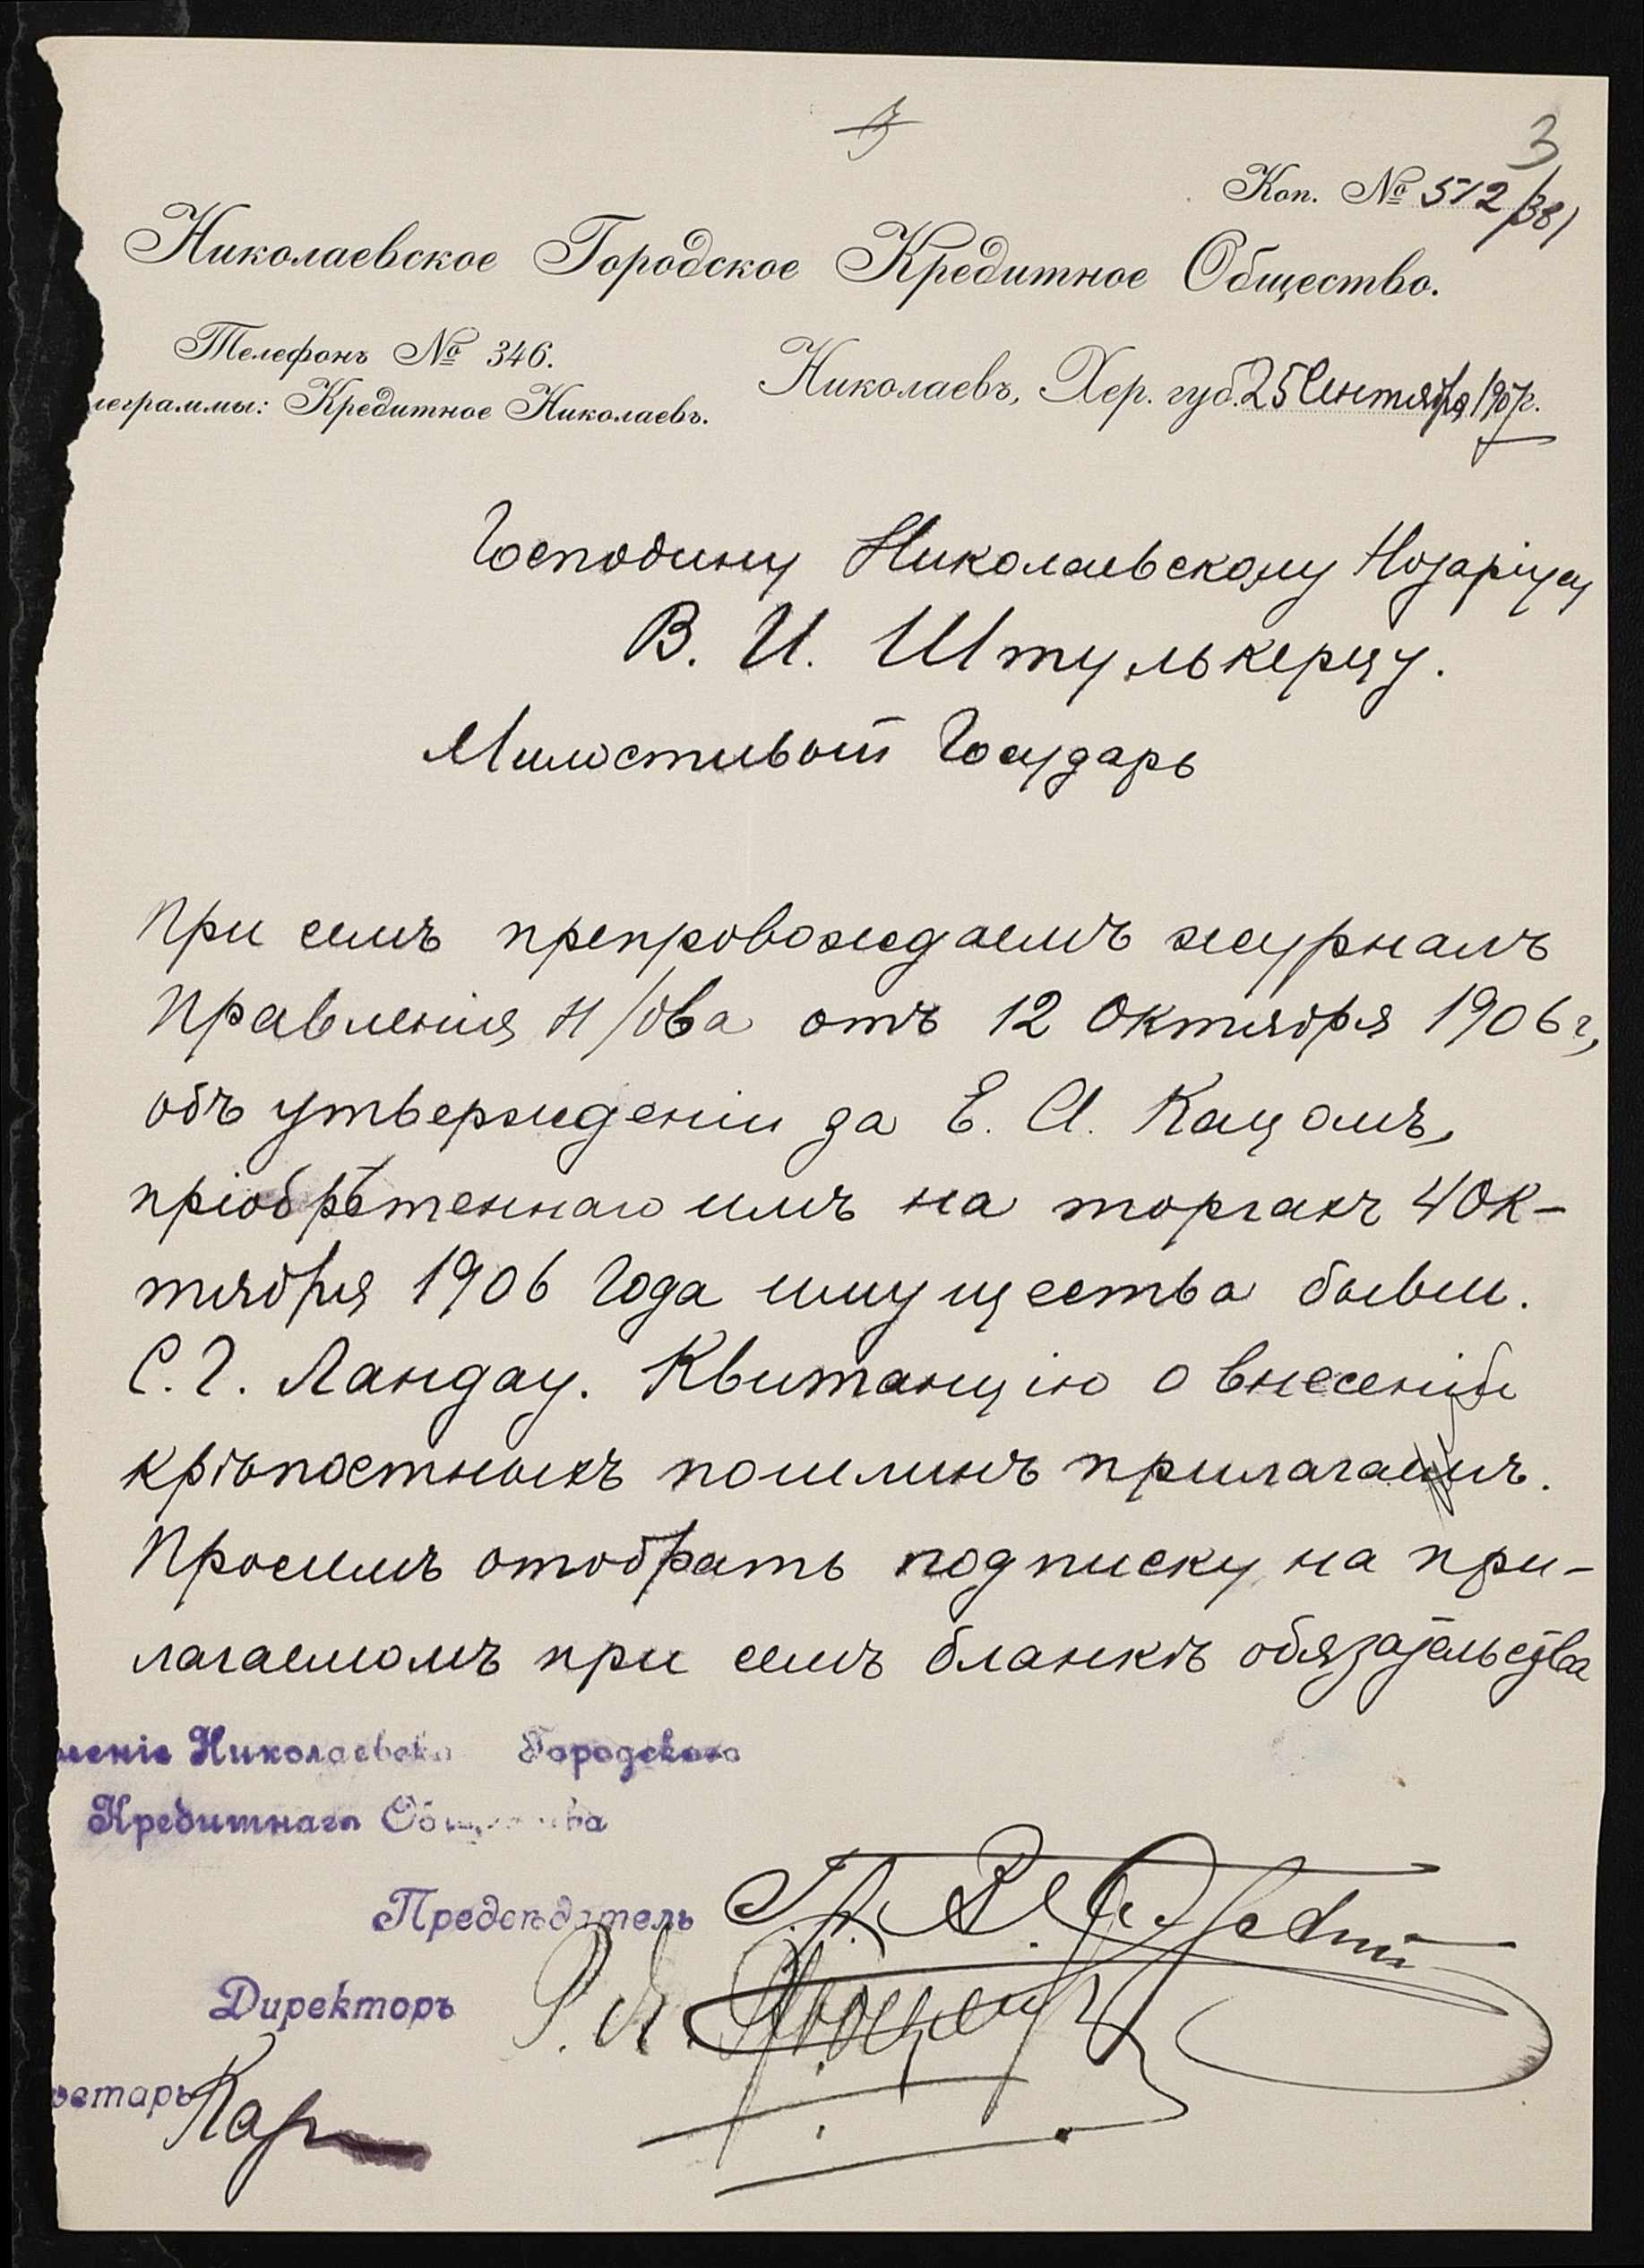 3
Коп. № 512/381
Николаевское Городское Кредитное Общество.
Телефонъ № 346.
леграммы: Кредитное Николаевъ.
Николаевъ, Хер. губ. 25 Сентября 1907 г.
Господину Николаевскому Нотаріусу
В. И. Штулькерцу.
Милостивый Государь
При семъ препровождаемъ журналъ
Правленія Н/О-ва отъ 12 Октября 1906 г,
объ утвержденіи за Е. А. Кацомъ,
пріобрѣтеннаго имъ на торгахъ 4 Ок-
тября 1906 Года имущества бывш.
С. Г. Ландау. Квитанцію о внесеніи
крѣпостныхъ пошлинъ прилагаемъ.
Просимъ отобрать подписку на при-
лагаемомъ при семъ бланкѣ обязательства
леніе Николаевска Городского
Кредитнаго Общества
Предсѣдатель
Директоръ
ретарь